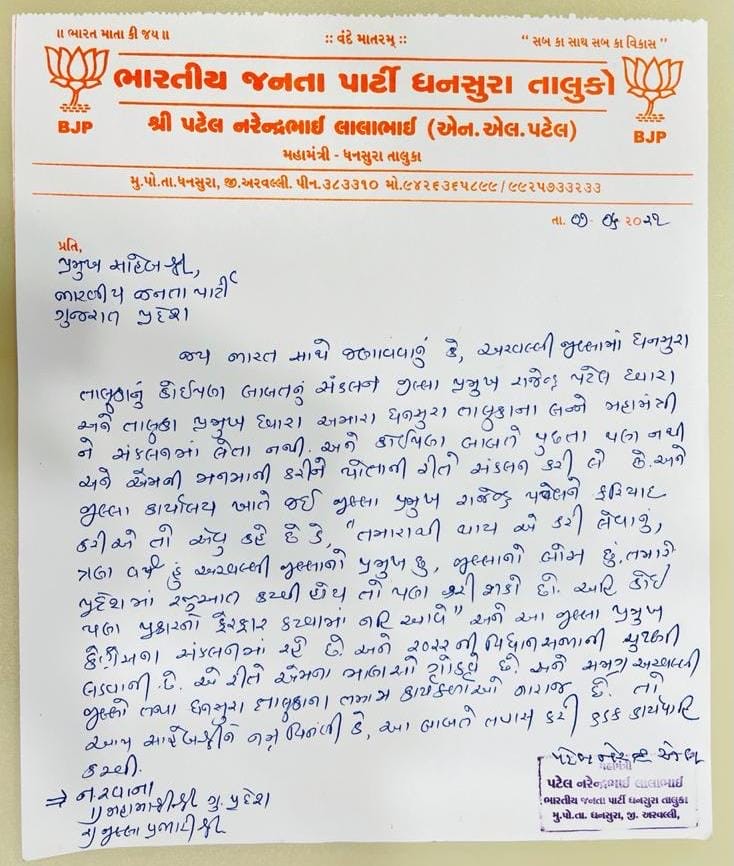 ॥ ભારત માતા કી જય॥ :: વંદે માતરમ્ :: “ સબ કા સાથ સબ કા વિકાસ ”
ભારતીય જનતા પાર્ટી ધનસુરા તાલુકો
BJP શ્રી પટેલ નરેન્દ્રભાઈ લાલાભાઈ (એન.એલ.પટેલ) BJP
મહામંત્રી - ધનસુરા તાલુકા
મુ.પો.તા.ધનસુરા, જી.અરવલ્લી. પીન.૩૮૩૩૧૦ મો.૯૪૨૬૩૬૫૮૯૯/૯૯૨૫૭૩૩૨૩૩
તા. ૨૦૨૧
પ્રતિ,
પ્રમુખ સાહેબશ્રી,
ભારતીય જનતા પાર્ટી
ગુજરાત પ્રદેશ
જય ભારત સાથે જણાવવાનું કે, અરવલ્લી જીલ્લામાં ધનસુરા
તાલુકાનું કોઈપણ બાબતનું સંકલન જીલ્લા પ્રમુખ રાજેન્દ્ર પટેલ ધ્વારા
અને તાલુકા પ્રમુખ ધ્વારા અમારા ધનસુરા તાલુકાના બન્ને મહામંત્રી
ને સંકલનમાં લેતા નથી. અને કોઈપણ બાબતે પુછતા પણ નથી
અને એમની મનમાની કરીને પોતાની રીતે સંકલન કરી લે છે. અને
જીલ્લા કાર્યાલય ખાતે જઈ જીલ્લા પ્રમુખ રાજેન્દ્ર પટેલને ફરિયાદ
કરીએ તો એવુ કહે છે કે, “તમારાથી થાય એ કરી લેવાનું,
ત્રણ વર્ષ હું અરવલ્લી જીલ્લાનો પ્રમુખ છુ, જીલ્લાનો બોસ છું. તમારે
પ્રદેશમાં રજુઆત કરવી હોય તો પણ કરી શકો છો. અહિ કોઈ
પણ પ્રકારનો ફેરફાર કરવામાં નહિ આવે” અને આ જીલ્લા પ્રમુખ
કોંગ્રેસના સંકલનમાં રહે છે. અને ૨૦૨૨ ની વિધાનસભાની ચુટણી
લડવાની છે. એ રીતે એમના માણસો ગોઠવે છે. અને સમગ્ર અરવલ્લી
જીલ્લો તથા ધનસુરા તાલુકાના તમામ કાર્યકર્તાઓ નારાજ છે. તો
આપ સાહેબશ્રીને નમ્ર વિનંતી કે, આ બાબતે તપાસ કરી કડક કાર્યવાહિ
કરવી.
પટેલ નરેન્દ્ર એલ
⇒ નકલ રવાના
૧) મહામંત્રીશ્રી ગુ. પ્રદેશ
૨) જીલ્લા પ્રભારીશ્રી
મહામંત્રી
પટેલ નરેન્દ્રભાઈ લાલાભાઈ
ભારતીય જનતા પાર્ટી ધનસુરા તાલુકા
મુ.પો.તા. ધનસુરા, જી. અરવલ્લી,